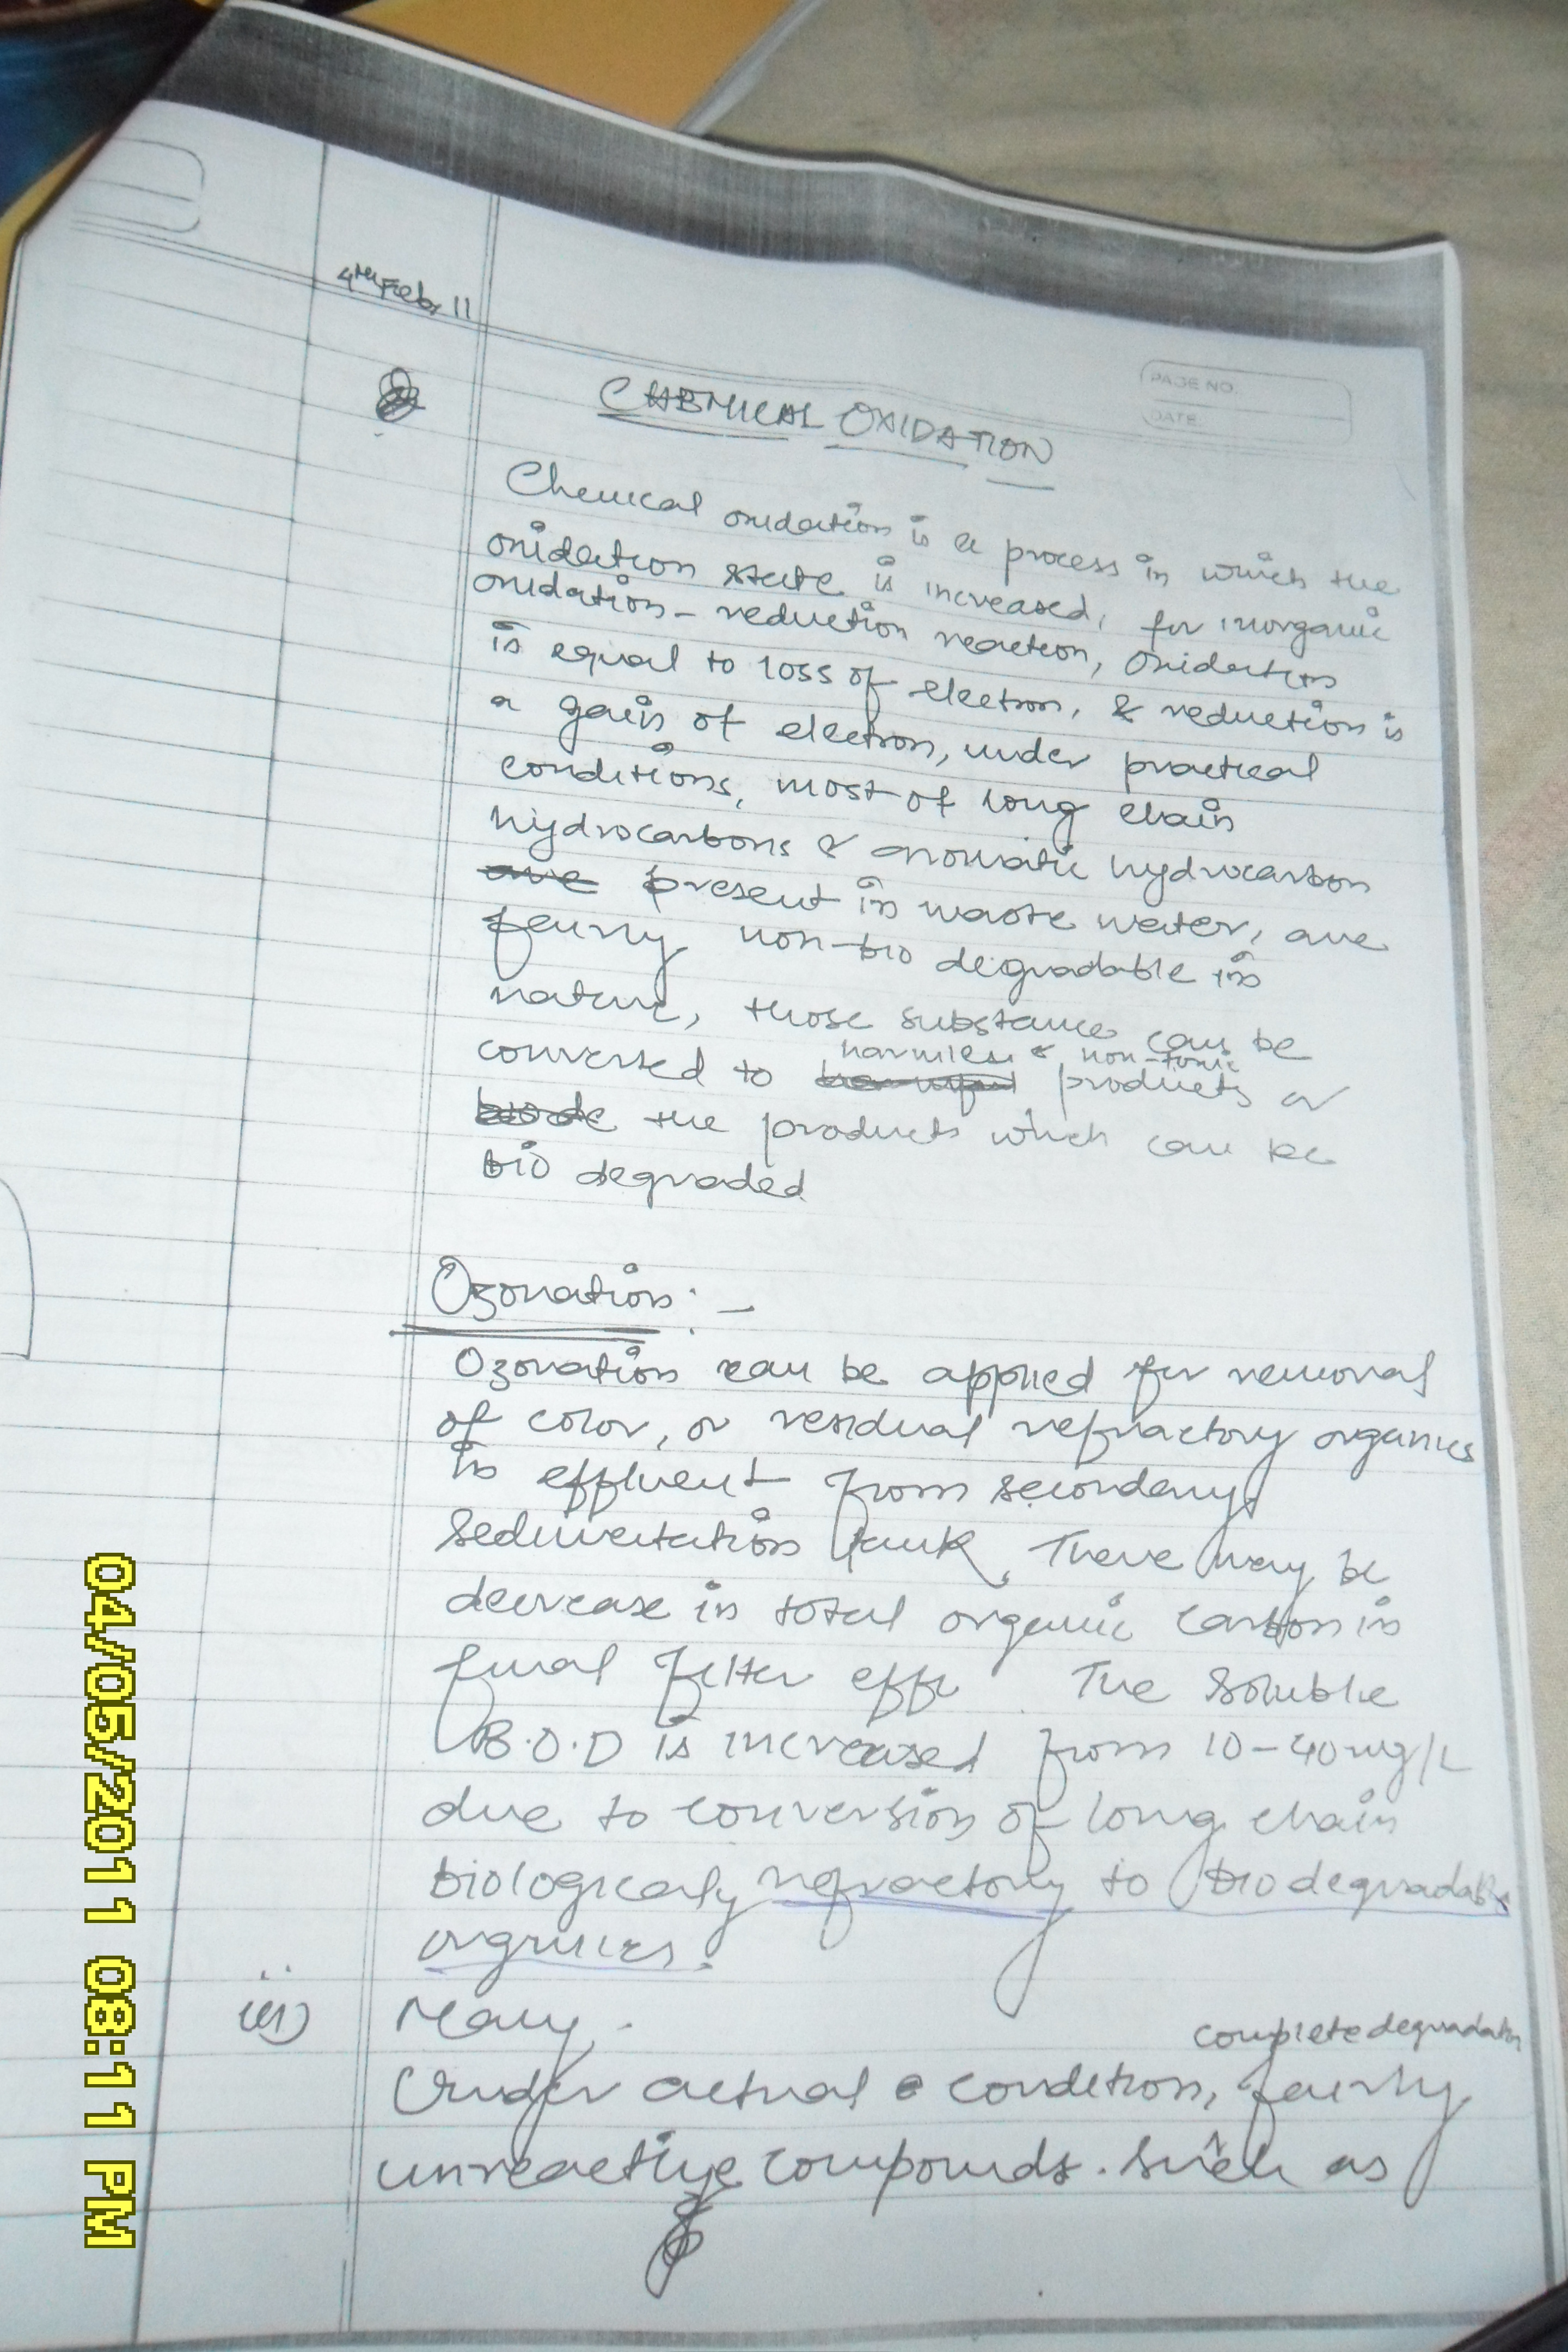 4th Feb, 11
PAGE NO.
DATE:
CHEMICAL OXIDATION
Chemical oxidation is a process in which the
oxidation state is increased, for inorganic
oxidation - reduction reaction, oxidation
is equal to loss of electron, & reduction is
a gain of electron, under practical
conditions, most of long chain
hydrocarbons & aromatic hydrocarbon
are present in waste water, are
fairly non-bio degradable in
nature, those substance can be
harmless & non-toxic
converted to products or
the products which can be
bio degraded
Ozonation : -
Ozonation can be applied for removal
of color, or residual refractory organics
in effluent from secondary
sedimentation tank, There may be
decrease in total organic carbon in
final filter effl The soluble
B.O.D is increased from 10-40mg/L
due to conversion of long chain
biologicaly refractory to biodegradable
organics.
iii) Many.
complete degradation
Under actual condition, fairly
unreactive compounds. such as
04/05/2011 08:11 PM